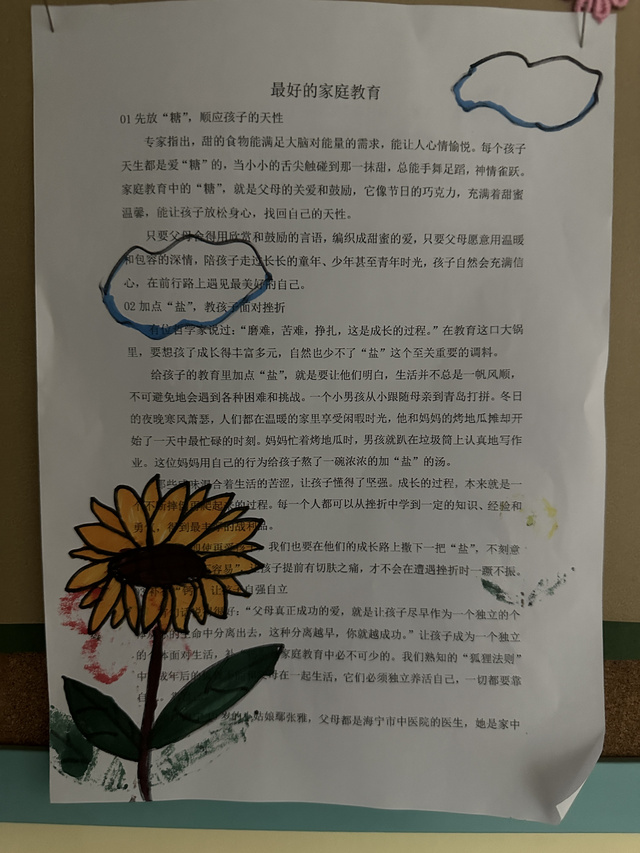 最好的家庭教育
01 先放“糖”，顺应孩子的天性
专家指出，甜的食物能满足大脑对能量的需求，能让人心情愉悦。每个孩子
天生都是爱“糖”的，当小小的舌尖触碰到那一抹甜，总能手舞足蹈，神情雀跃。
家庭教育中的“糖”，就是父母的关爱和鼓励，它像节日的巧克力，充满着甜蜜
温馨，能让孩子放松身心，找回自己的天性。
只要父母舍得用欣赏和鼓励的言语，编织成甜蜜的爱，只要父母愿意用温暖
和包容的深情，陪孩子走过长长的童年、少年甚至青年时光，孩子自然会充满信
心，在前行路上遇见最美好的自己。
02 加点“盐”，教孩子面对挫折
有位哲学家说过：“磨难，苦难，挣扎，这是成长的过程。”在教育这口大锅
里，要想孩了成长得丰富多元，自然也少不了“盐”这个至关重要的调料。
给孩子的教育里加点“盐”，就是要让他们明白，生活并不总是一帆风顺，
不可避免地会遇到各种困难和挑战。一个小男孩从小跟随母亲到青岛打拼。冬日
的夜晚寒风萧瑟，人们都在温暖的家里享受闲暇时光，他和妈妈的烤地瓜摊却开
始了一天中最忙碌的时刻。妈妈忙着烤地瓜时，男孩就趴在垃圾筒上认真地写作
业。这位妈妈用自己的行为给孩子熬了一碗浓浓的加“盐”的汤。
那些咸味混合着生活的苦涩，让孩子懂得了坚强。成长的过程，本来就是一
个不断摔倒再爬起来的过程。每一个人都可以从挫折中学到一定的知识、经验和
勇气，得到最丰 的战利品。
我们也要在他们的成长路上撒下一把“盐”，不刻意
不容易”， 孩子提前有切肤之痛，才不会在遭遇挫折时一蹶不振。
让孩子自强自立
好：“父母真正成功的爱，就是让孩子尽早作为一个独立的个
的生命中分离出去，这种分离越早，你就越成功。”让孩子成为一个独立
的个体面对生活， 家庭教育中必不可少的。我们熟知的“狐狸法则”
成年后的 母在一起生活，它们必须独立养活自己，一切都要靠
自
小姑娘鄢张雅，父母都是海宁市中医院的医生，她是家中